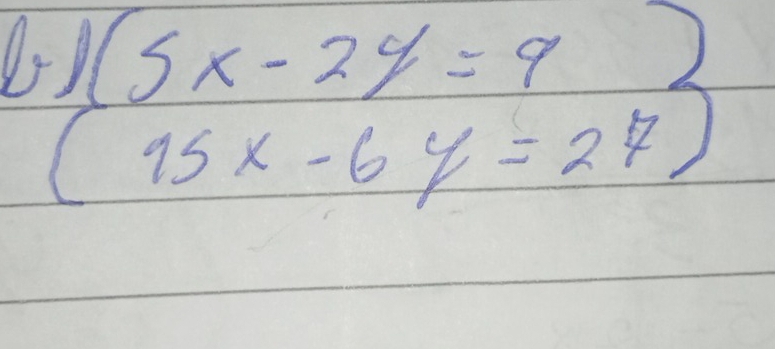 b) { 5x - 2y = 9 }
{ 15x - 6y = 27 }